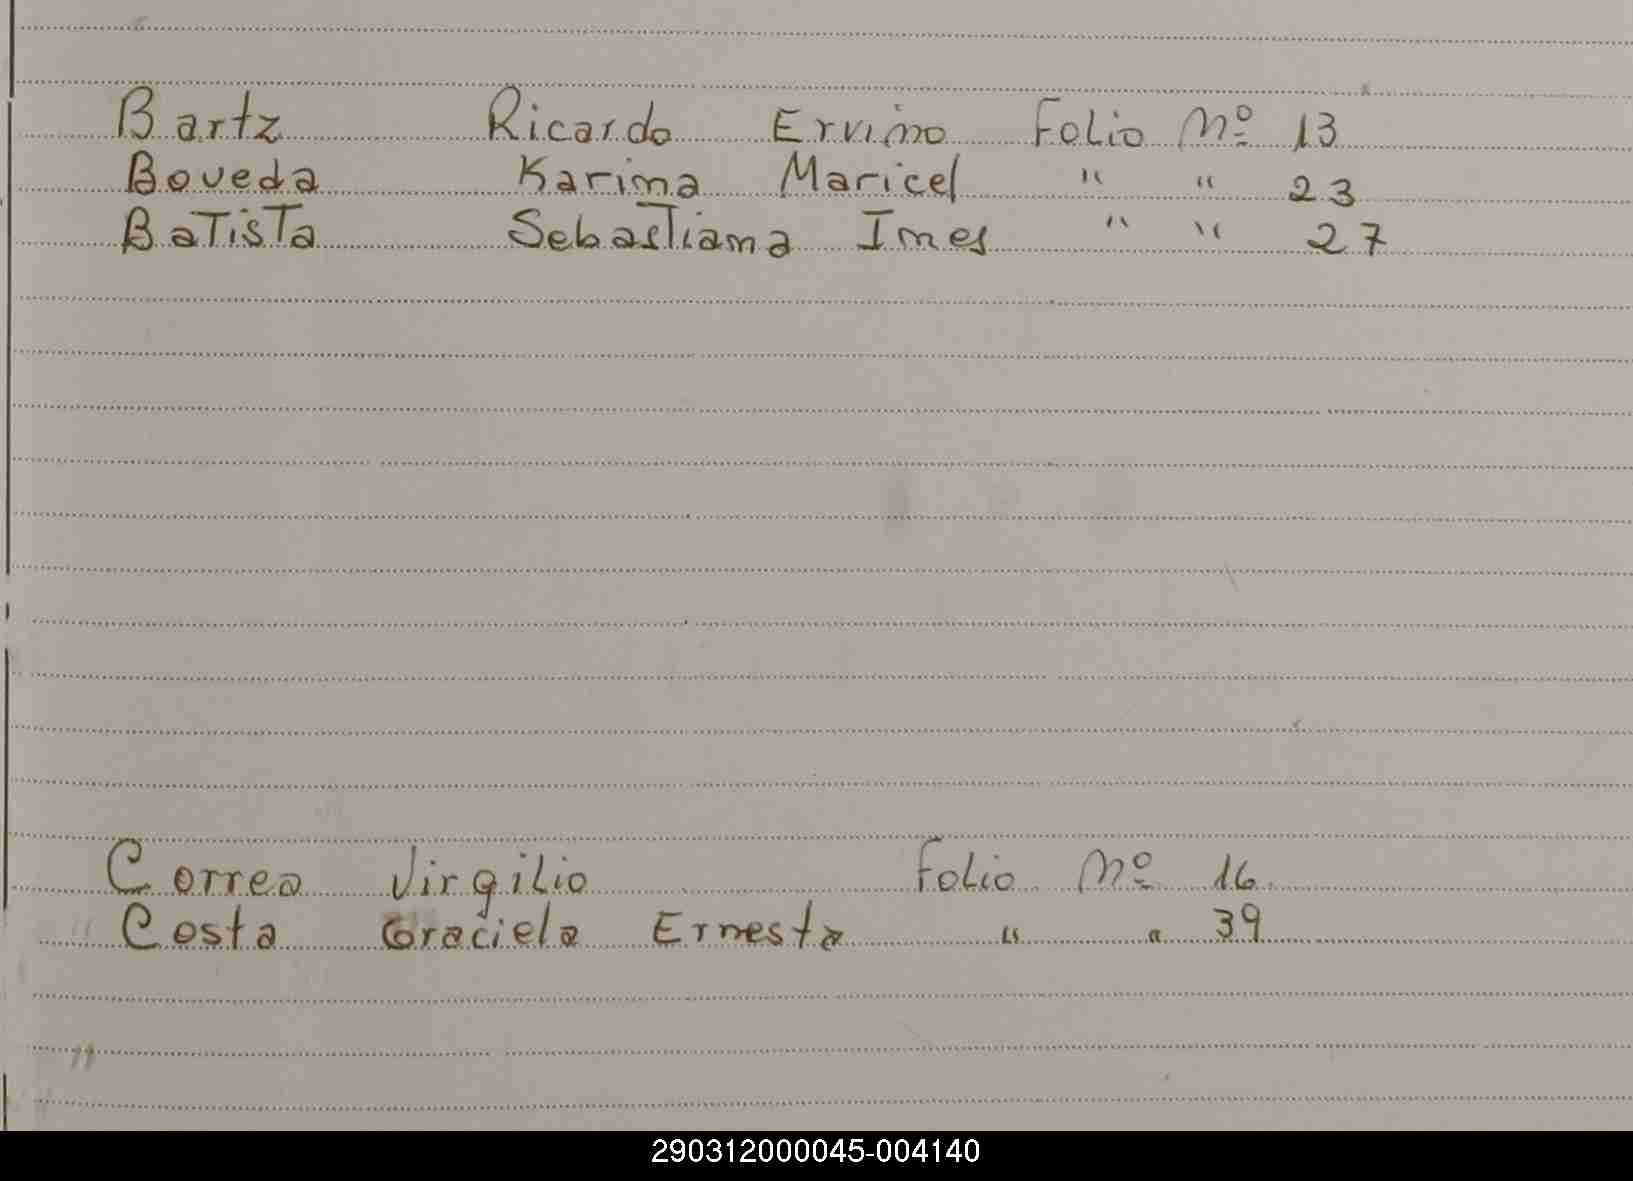 Bartz Ricardo Ervino Folio Nº 13
Boveda Karina Maricel " " 23
Batista Sebastiana Ines " " 27
Correa Virgilio Folio Nº 16
Costa Graciela Ernesta " " 39
290312000045-004140